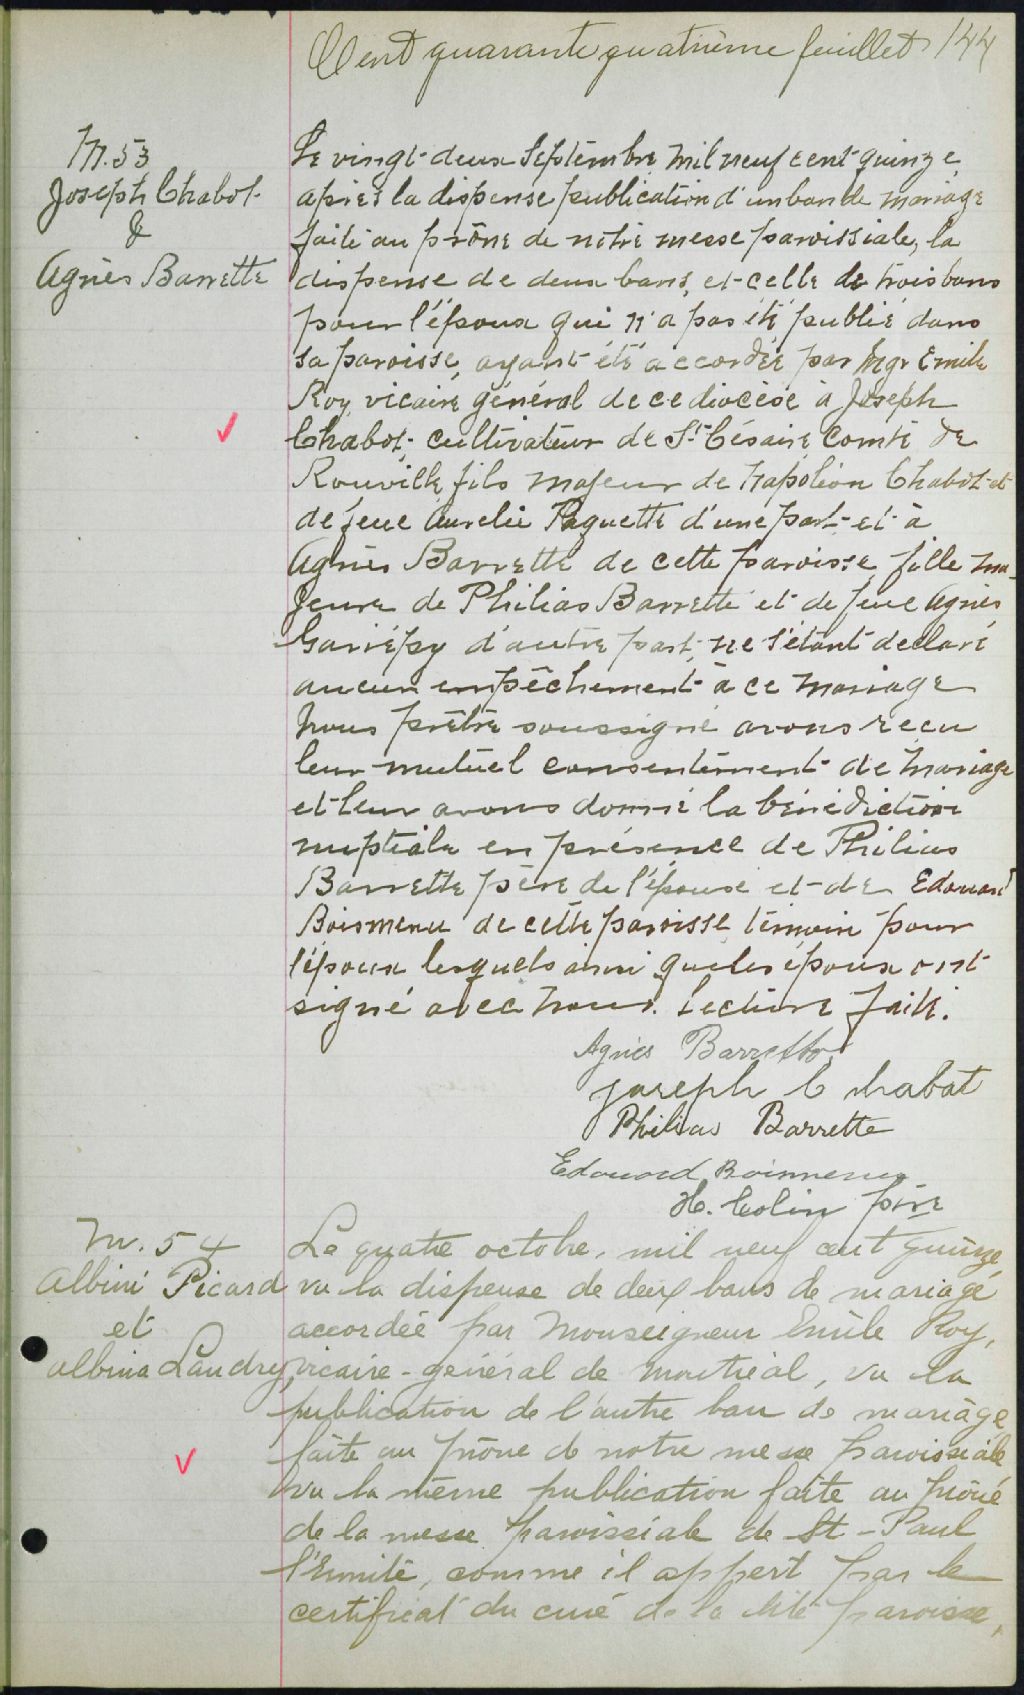 Cent quarante quatrième feuillet 144
M. 53
Joseph Chabot
&
Agnès Barrette
Le vingt-deux Septembre mil neuf cent quinze
après la dispense publication d'un ban de mariage
faite au prône de notre messe paroissiale, la
dispense de deux bans, et celle de trois bans
pour l'époux qui n'a pas été publié dans
sa paroisse, ayant été accordée par Mgr Emile
Roy, vicaire général de ce diocèse à Joseph
Chabot, cultivateur de St-Césaire Comté de
Rouville, fils majeur de Napoléon Chabot et
de feue Aurelie Paquette d'une part et à
Agnès Barrette de cette paroisse, fille ma-
jeure de Philias Barrette et de feue Agnès
Gariépy d'autre part, ne s'étant déclaré
aucun empêchement à ce mariage
Nous prêtre soussigné avons recu
leur mutuel consentement de mariage
et leur avons donné la bénédiction
nuptiale en présence de Philias
Barrette père de l'épouse et de Edouard
Boismenu de cette paroisse, témoin pour
l'époux lesquels ainsi que les époux ont
signé avec nous. Lecture faite.
Agnès Barrette
Joseph Chabot
Philias Barrette
Edouard Boismenu
H. Colin ptre
M. 54
Albini Picard
et
Albina Landry
Le quatre octobre, mil neuf cent quinze,
vu la dispense de deux bans de mariage
accordée par Monseigneur Emile Roy,
vicaire-général de Montréal, vu la
publication de l'autre ban de mariage
faite au prône de notre messe paroissiale
vu la même publication faite au prône
de la messe paroissiale de St-Paul
l'Ermite, comme il appert par le
certificat du curé de la dite paroisse,